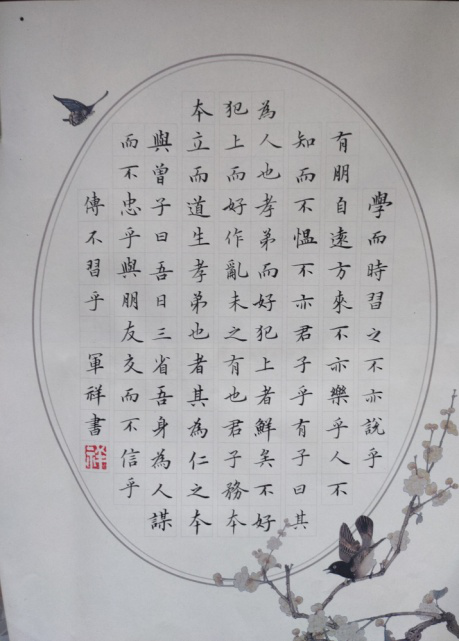 學而時習之不亦說乎
有朋自遠方來不亦樂乎人不
知而不愠不亦君子乎有子曰其
為人也孝弟而好犯上者鮮矣不好
犯上而好作亂未之有也君子務本
本立而道生孝弟也者其為仁之本
與曾子曰吾日三省吾身為人謀
而不忠乎與朋友交而不信乎
傳不習乎 軍祥書
祥